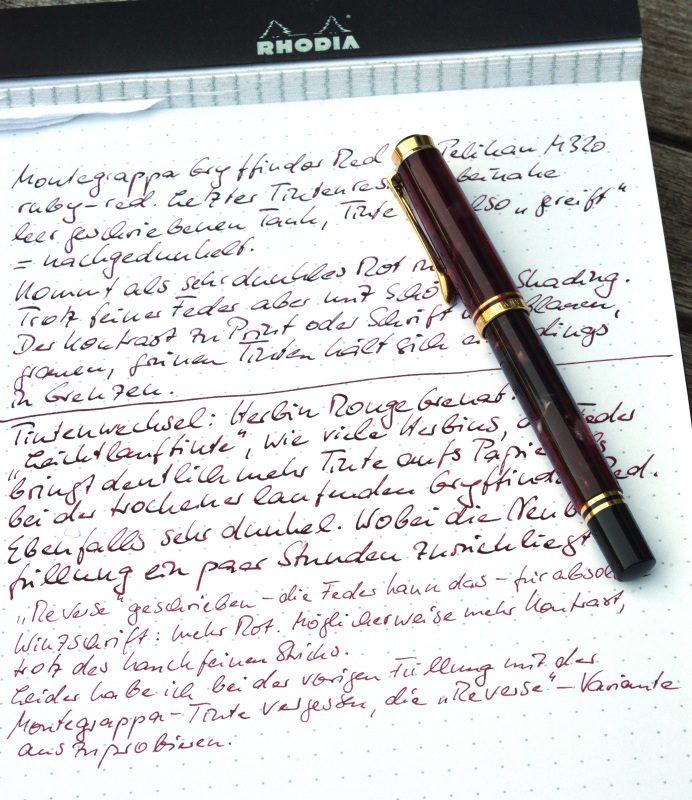 RHODIA
Montegrappa Gryffindor Red Pelikan M320
ruby-red. Letzter Tintenres beinahe
leer geschriebenen Tank, Tinte also „greift“
= nachgedunkelt.
Kommt als sehr dunkles Rot Shading.
Trotz feiner Feder aber mit
Der Kontrast zu Print oder Schrift blauen,
grauen, grünen Tinten hält sich dings
in Grenzen.
Tintenwechsel: Herbin Rouge Grenat.
„Leichtlauftinte“, wie viele Herbins, Feder
bringt deutlich mehr Tinte aufs Papier
bei der trockener laufenden Gryffindor Red.
Ebenfalls sehr dunkel. Wobei die Neub
füllung ein paar Stunden zurückliegt
„Reverse“ geschrieben – die Feder kann das – für absol
Winzschrift: mehr Rot. Möglicherweise mehr Kontrast,
trotz des hauchfeinen Strichs.
Leider habe ich bei der vorigen Füllung mit der
Montegrappa-Tinte vergessen, die „Reverse“-Variante
auszuprobieren.